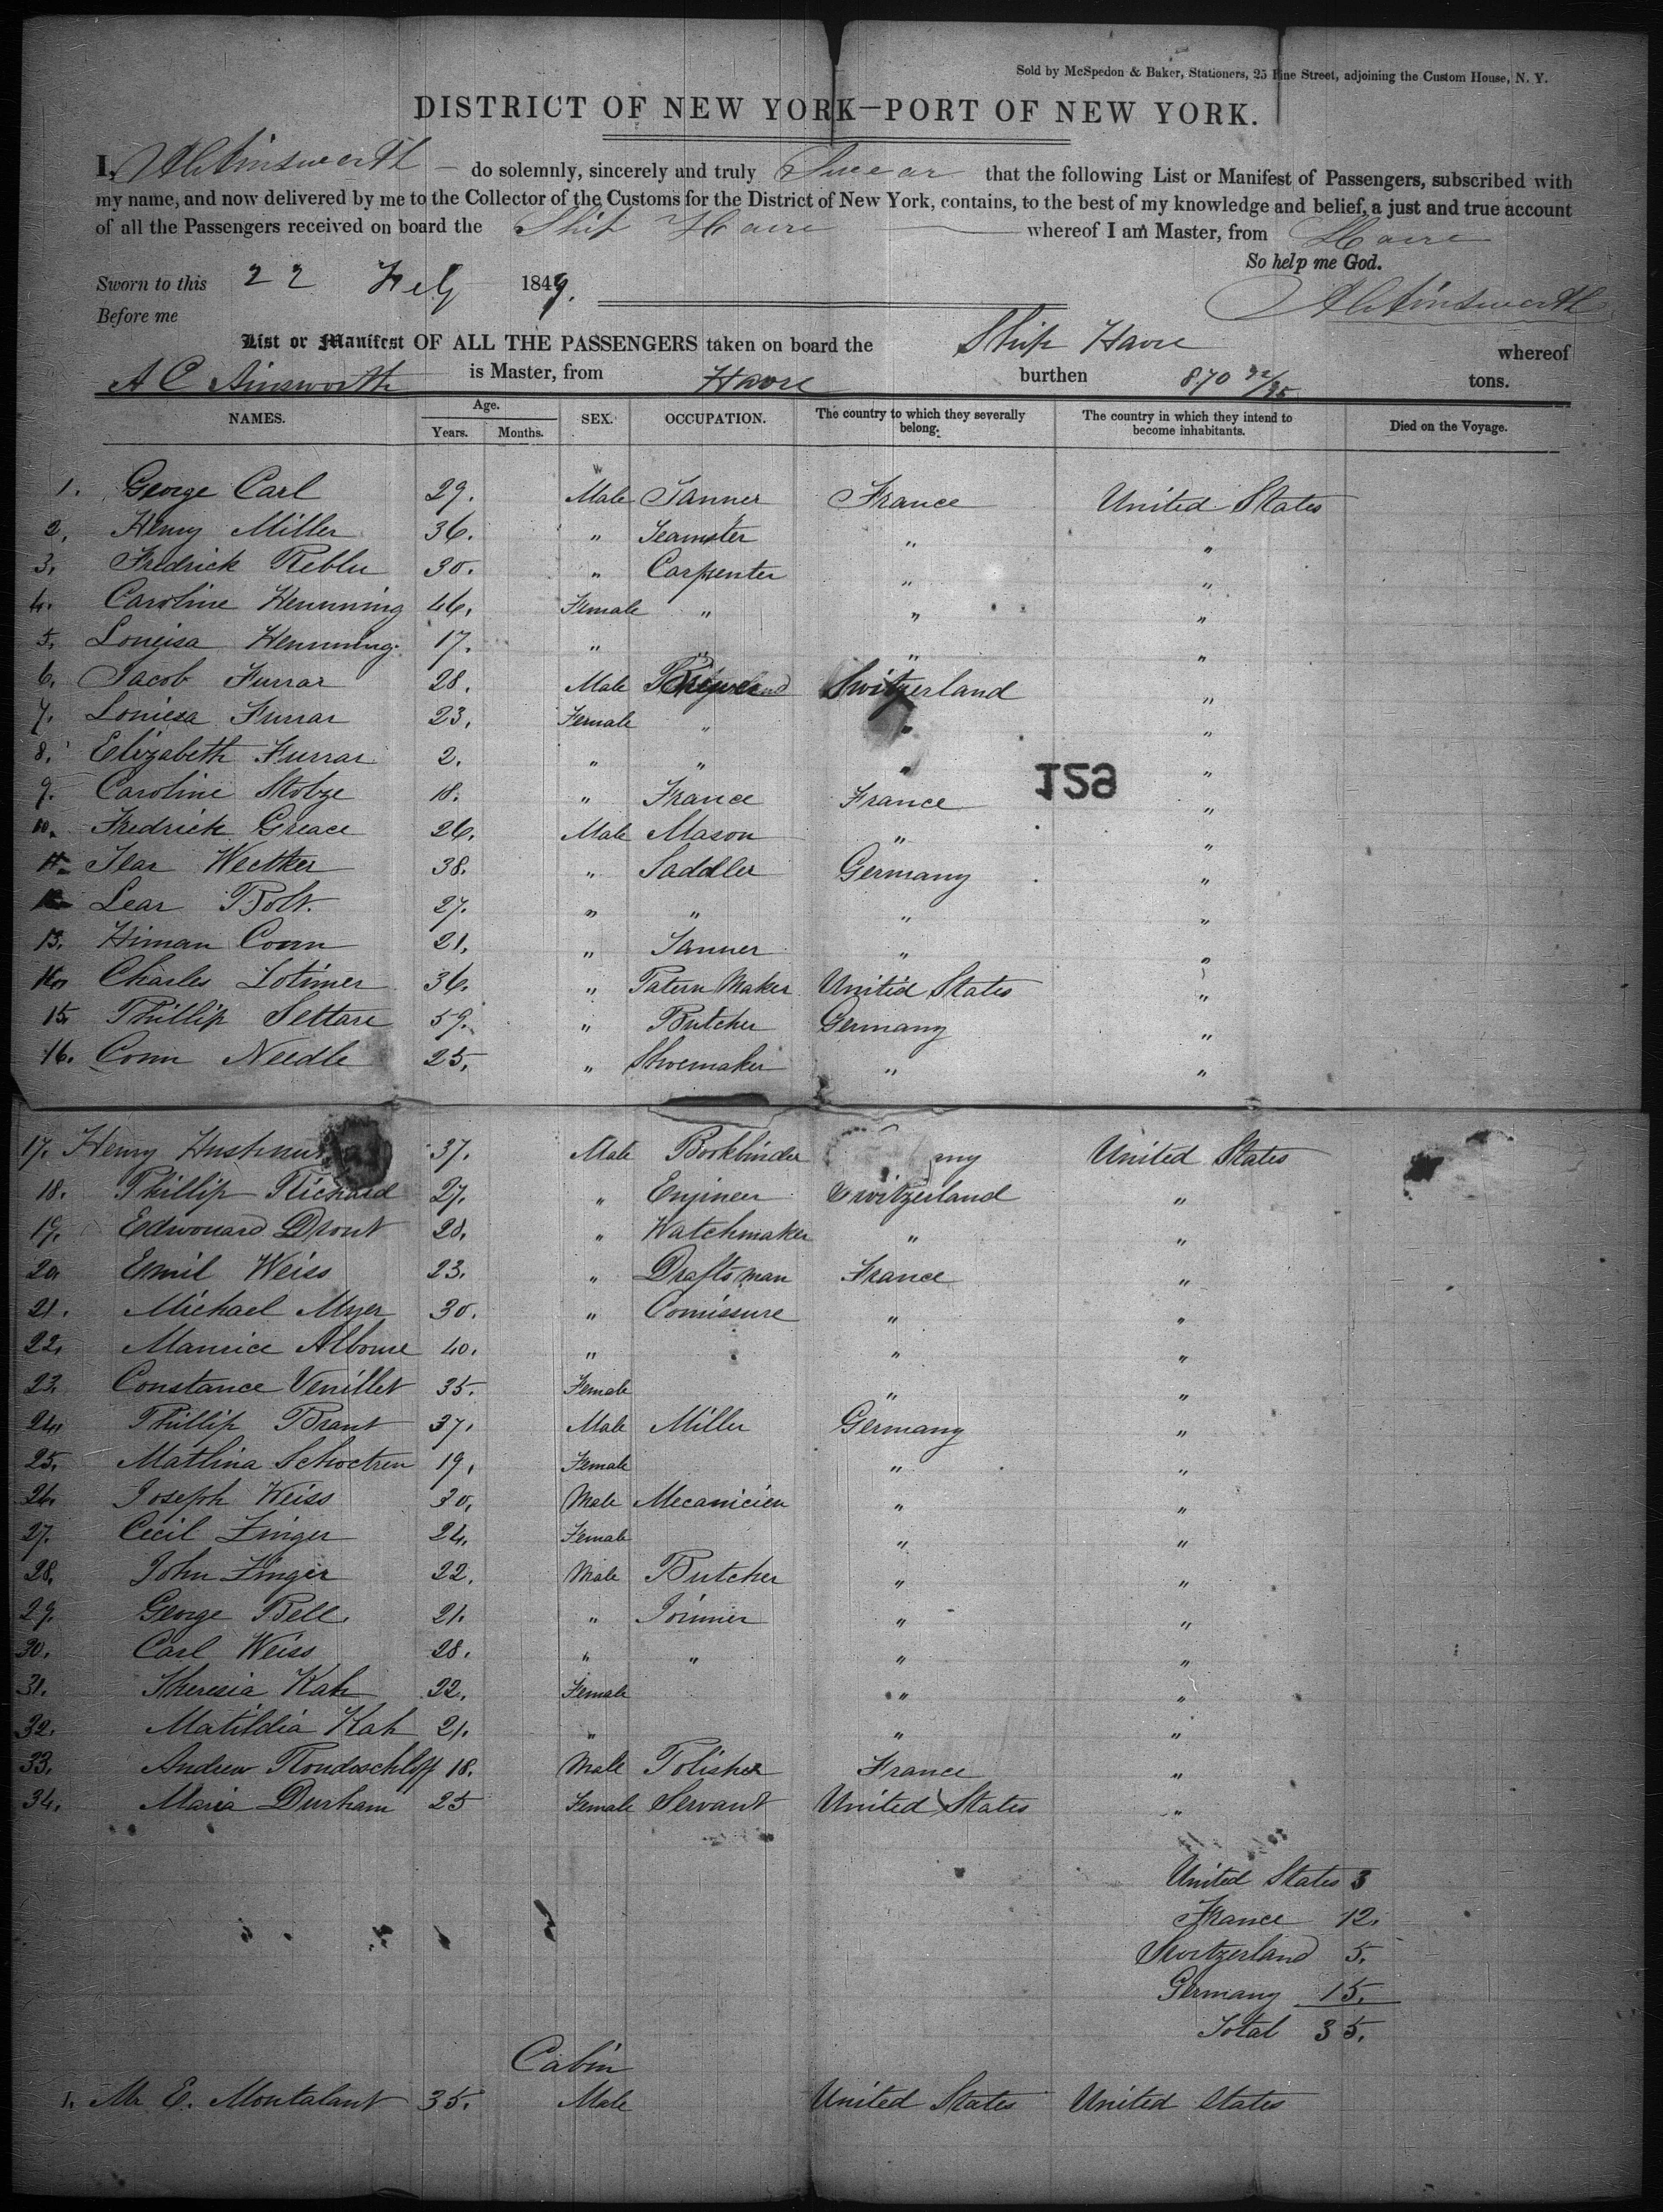 Sold by McSpedon & Baker, Stationers, 25 Pine Street, adjoining the Custom House, N. Y.
DISTRICT OF NEW YORK—PORT OF NEW YORK.
I, A C Ainsworth do solemnly, sincerely and truly Swear that the following List or Manifest of Passengers, subscribed with
my name, and now delivered by me to the Collector of the Customs for the District of New York, contains, to the best of my knowledge and belief, a just and true account
of all the Passengers received on board the Ship Havre whereof I am Master, from Havre
So help me God.
Sworn to this 22 Feby 1849.
A C Ainsworth
Before me
List or Manifest OF ALL THE PASSENGERS taken on board the Ship Havre whereof
A C Ainsworth is Master, from Havre burthen 870 92/95 tons.
NAMES. Age. Years. Months. SEX. OCCUPATION. The country to which they severally belong. The country in which they intend to become inhabitants. Died on the Voyage.
1. George Carl 29. Male Tanner France United States
2. Henry Miller 36. " Teamster " "
3. Fredrick Rebler 30. " Carpenter " "
4. Caroline Hennning 46. Female " " "
5. Louisa Hennning 17. " " " "
6. Jacob Furrar 28. Male Switzerland "
7. Louiesa Furrar 23. Female " " "
8. Elizabeth Furrar 2. " " " "
9. Caroline Stobze 18. " France France "
1521
10. Fredrick Greace 26. Male Mason " "
11. Jear Wectker 38. " Saddler Germany "
12. Lear Bolt. 27. " " " "
13. Himan Conn 21. " Tanner " "
14. Charles Lotimer 36. " Patern Maker United States "
15. Phillip Settare 59. " Butcher Germany "
16. Conn Needle 25. " Shoemaker " "
17. Henry 37. Male Bookbinder many United States
18. Phillip Richard 27. " Enjineer Switzerland "
19. Edwouard Dront 28. " Watchmaker " "
20. Emil Weiss 23. " Drafts man France "
21. Michael Myer 30. " Comissure " "
22. Maurice Albome 40. " " "
23. Constance Venillet 35. Female " "
24. Phillip Brant 37. Male Miller Germany "
25. Mathina Schoctren 19. Female " "
26. Joseph Weiss 30. Male Mecanicien " "
27. Cecil Zinger 24. Female " "
28. John Zinger 22. Male Butcher " "
29. George Bell. 21. " Joinner " "
30. Carl Weiss 28. " " " "
31. Theresia Kah 22. Female " "
32. Matildia Kah 21. " " "
33. Andrew Rondoschloff 18. Male Polisher France "
34. Maria Durham 25 Female Servant United States "
United States 3
France 12.
Switzerland 5.
Germany 15.
Total 35.
Cabin
1. Mr E. Montalant 35. Male United States United States